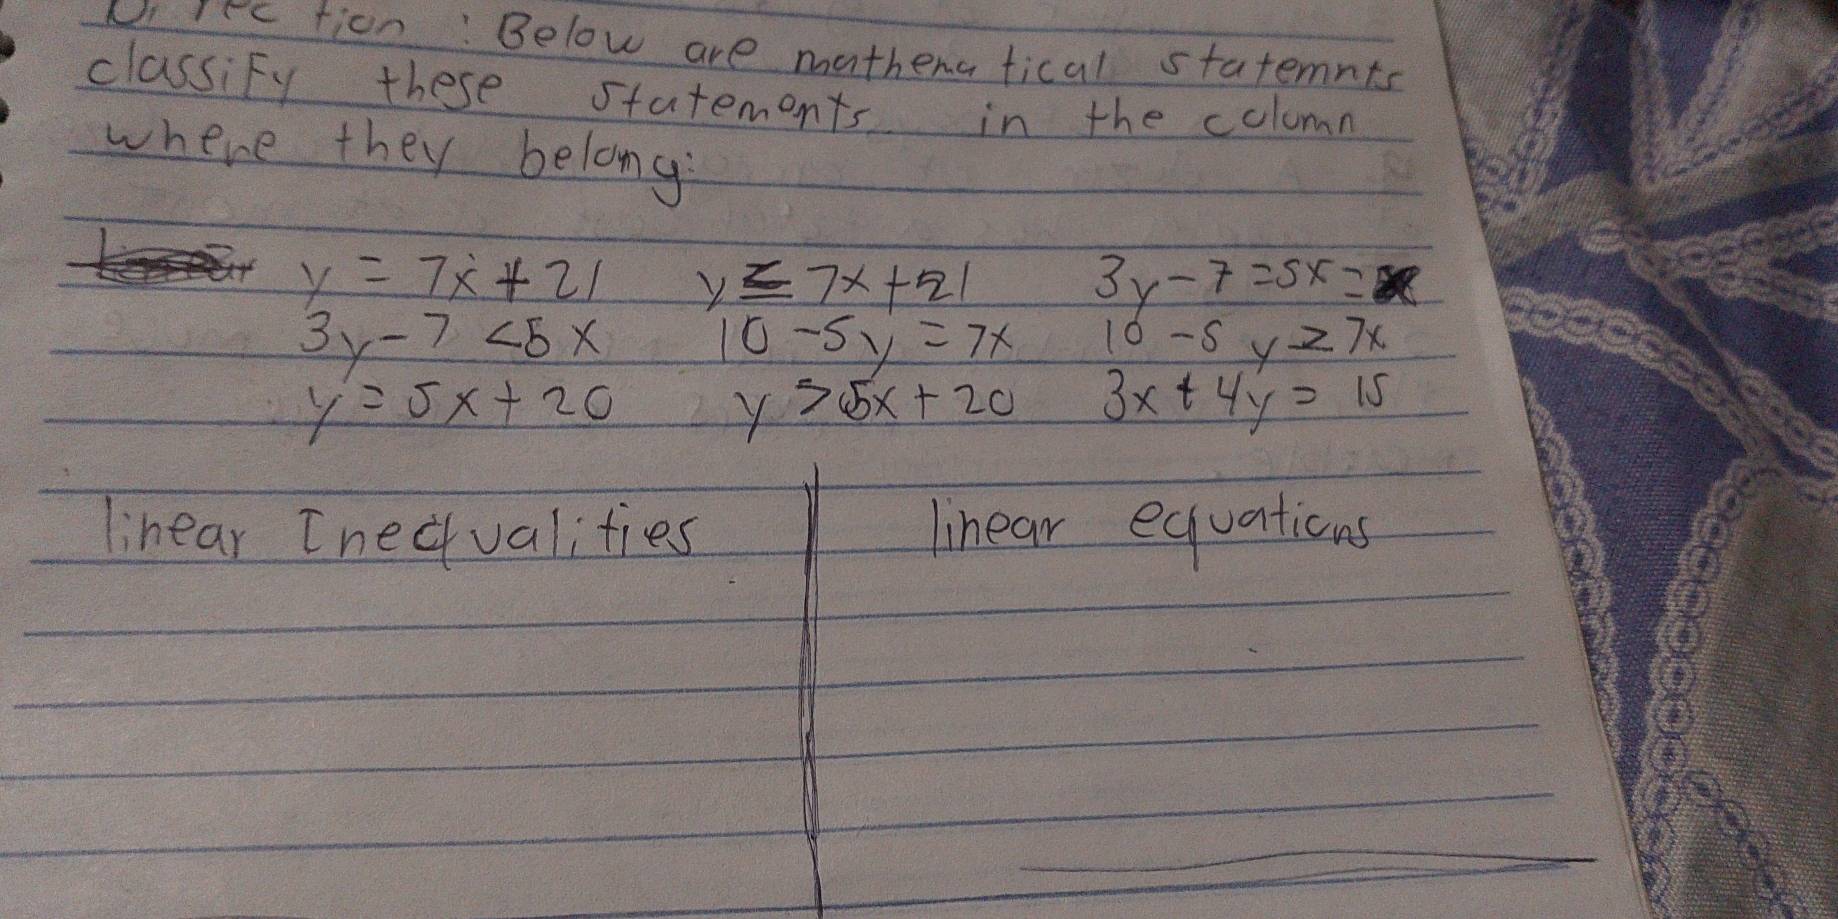 Direction : Below are mathematical statemnts
classify these statements in the column
where they belong:
y = 7x + 21 y ≤ 7x + 21 3y - 7 = 5x =
3y - 7 < 5x 10 - 5y = 7x 10 - 5y ≥ 7x
y = 5x + 20 y > 5x + 20 3x + 4y = 15
linear Inequalities linear equations